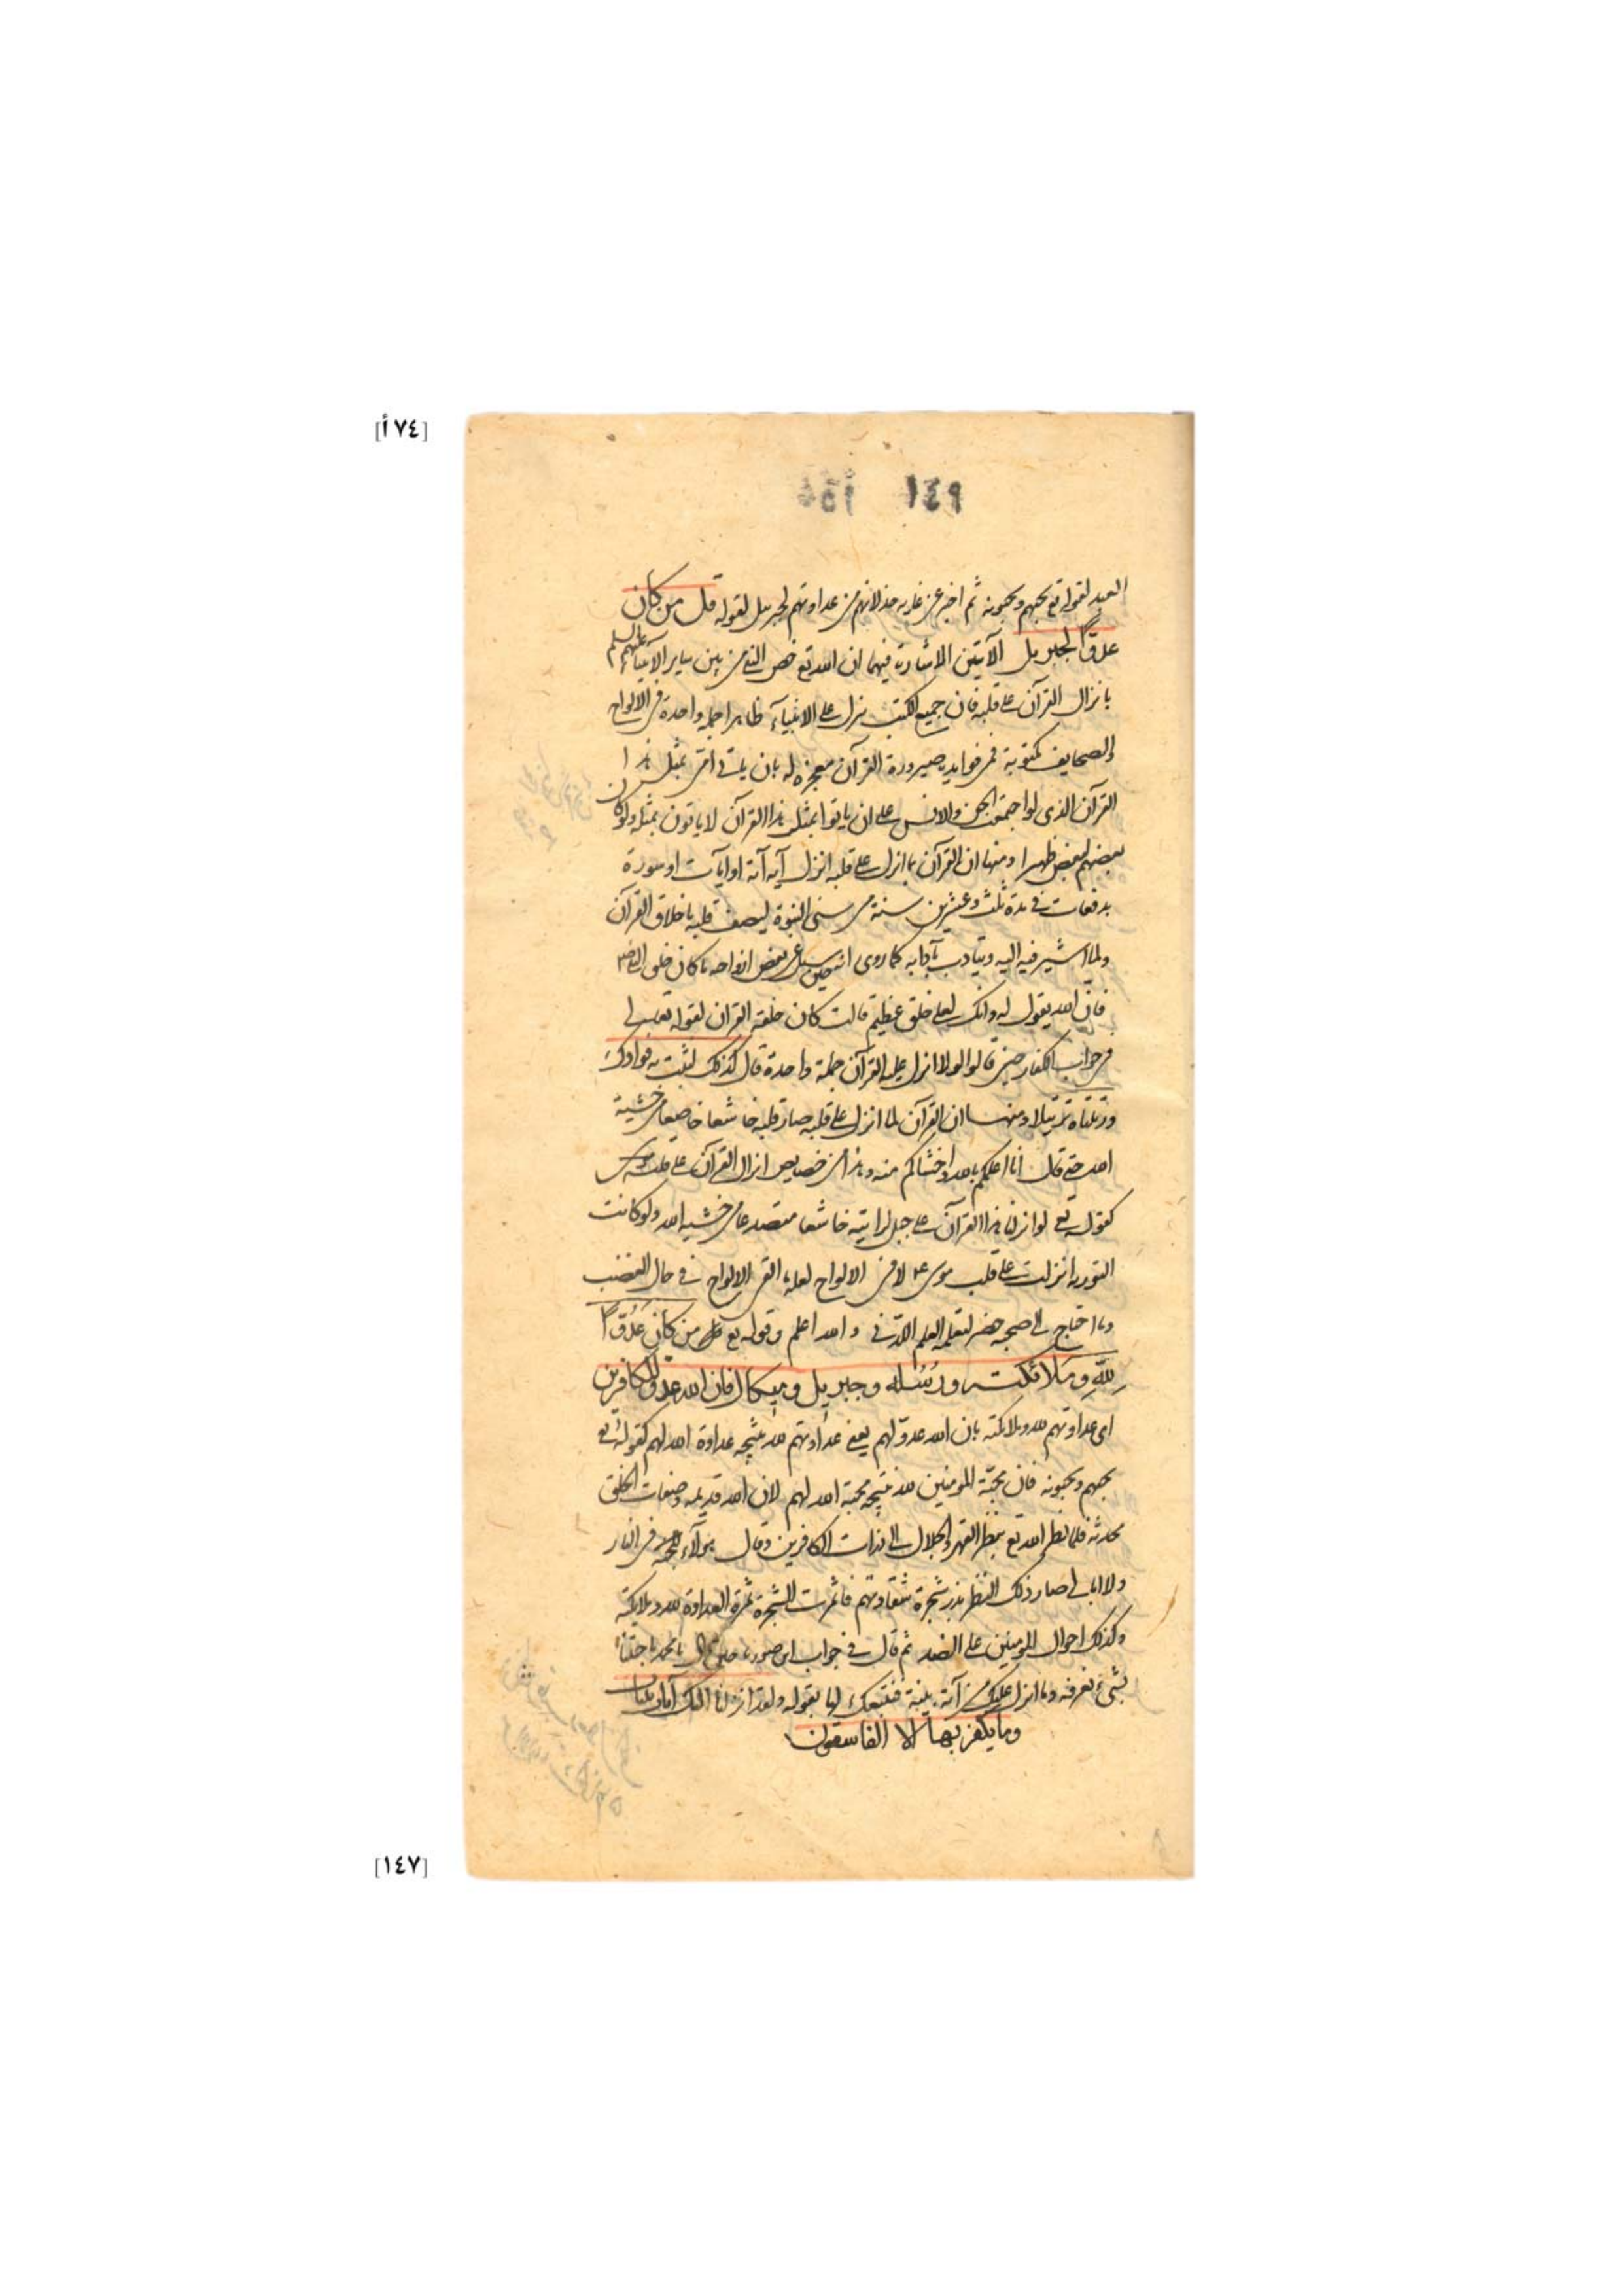 [٧٤ أ]
العبد لقوله تع يحبهم ويحبونه ثم اخبر عن غاية خذلانهم من عداوتهم لجبريل لقوله قل من كان
عدوًّا لجبريل الآيتين الاشارة فيهما ان الله تع خص النبي من بين ساير الانبيآء عليهم السلم
بانزال القرآن على قلبه فان جميع الكتب نزل على الانبيآء ظاهرا جملة واحدة في الالواح
والصحايف مكتوبة فمن فوايده صيرورة القرآن معجزة له بان ياتي امي بمثل هذا
القرآن الذى لو اجتمعت الجن والانس على ان ياتوا بمثل هذا القرآن لا ياتون بمثله ولو كان
بعضهم لبعض ظهيرا ومنها ان القرآن لما انزل على قلبه انزل آية آية او آيات او سورة
بدفعات في مدة ثلث وعشرين سنة من سنى النبوة ليتصف قلبه باخلاق القرآن
ولما اشير فيه اليه ويتادب بآدابه كما روى انه حين سئل عن بعض ازواجه ما كان خلق النبي صلعم
فان الله يقول له وانك لعلى خلق عظيم قالت كان خلقه القران لقوله تعالى
في جواب الكفار حين قالوا لولا انزل عليه القرآن جملة واحدة قال كذلك لنثبت به فوادك
ورتلناه ترتيلا ومنها ان القرآن لما انزل على قلبه صار قلبه خاشعا خاضعا من خشية
الله حتى قال انا اعلمكم بالله واخشاكم منه وهذا من خصايص انزال القرآن على قلبه
كقوله تع لو انزلنا هذا القرآن على جبل لرايته خاشعا متصدعا من خشية الله ولو كانت
التورية انزلت على قلب موسى ع م لا في الالواح لعله ما القى الالواح في حال الغضب
وما احتاج الى صحبة خضر لتعلم العلم اللدنى والله اعلم وقوله تع من كان عَدُوًّا
لِلّهِ وملائكته ورُسُله وجبريل وميكال فان الله عدو للكافرين
اى عداوتهم لله وملايكته بان الله عدوّ لهم يعنى عداوتهم لله نتيجة عداوة الله لهم كقوله تع
يحبهم ويحبونه فان محبّة المومنين لله نتيجة محبة الله لهم لان الله قديمه وصفات الخلق
محدثة فلما نظر الله تع بنظر القهر والجلال الى ذرات الكافرين وقال هولآء في النار
ولا ابالى صار ذلك النظر بذر شجرة شقاوتهم فاثمرت الشجرة ثمرة العداوة لله وملايكته
وكذلك احوال المومنين على الضد ثم قال في جواب ابن صوريا حين قال يا محمد ما جئتنا
بشىء نعرفه وما انزل عليك من آية بينة فنتبعك لها بقوله ولقد انزلنا اليك آيات بينات
وما يكفر بها الا الفاسقون
[١٤٧]